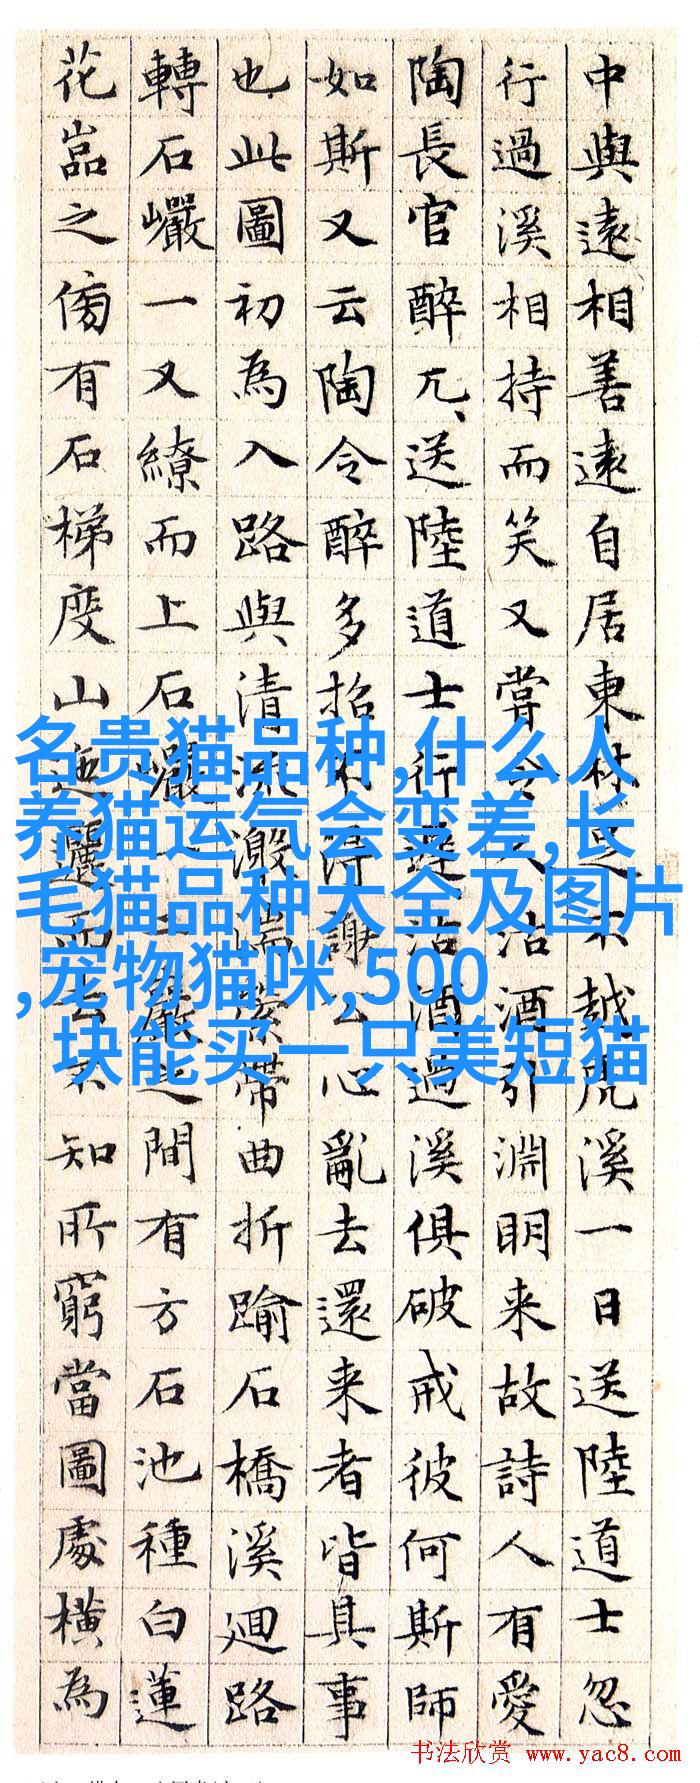 中與遠相善遠自居東林足不越虎溪一日送陸道士忽
行過溪相持而笑又嘗令人沽酒引淵明来故詩人有愛
陶長官醉兀、送陸道士行遲沽酒過溪俱破戒彼何斯師
如斯又云陶令醉多招不得謝公心亂去還来者皆具事
也此圖初為入路與清流激湍縈帶曲折踰石橋溪廻路
轉石巗一又繚而上石巗巖之間有方石池種白蓮
花嵓之傍有石梯度山迤邐而去不知所窮當圖處橫為
名贵猫品种,什么人
养猫运气会变差,长
毛猫品种大全及图片
,宠物猫咪,500
块能买一只美短猫
书法欣赏 www.yac8.com